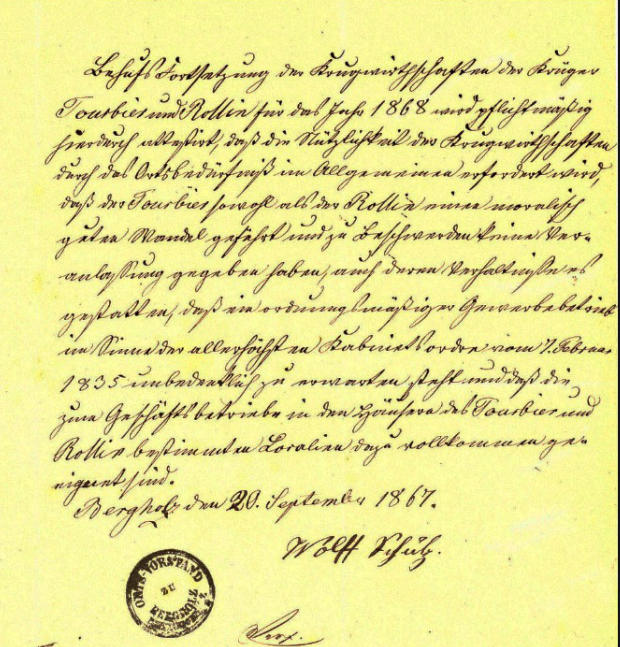 Behufs Fortsetzung der Krugwirthschaften der Krüger
Tourbier und Rollin für das Jahr 1868 wird pflichtmäßig
hierdurch attestirt, daß die Nützlichkeit der Krugwirthschaften
durch das Ortsbedürfniß im Allgemeinen erfordert wird,
daß der Tourbier sowohl als der Rollin einen moralisch
guten Wandel geführt und zu Beschwerden keine Ver-
anlassung gegeben haben, auch deren Verhältnisse es
gestatten, daß ein ordnungsmäßiger Gewerbebetrieb
im Sinne der allerhöchsten Kabinetsordre vom 7. Februar
1835 unbedenklich zu erwarten steht und daß die
zum Geschäftsbetriebe in den Häusern des Tourbier und
Rollin bestimmten Localien dazu vollkommen ge-
eignet sind.
Bergholz den 20. September 1867.
Wolff Schulz.
ORTS-VORSTAND
ZU
BERGHOLZ